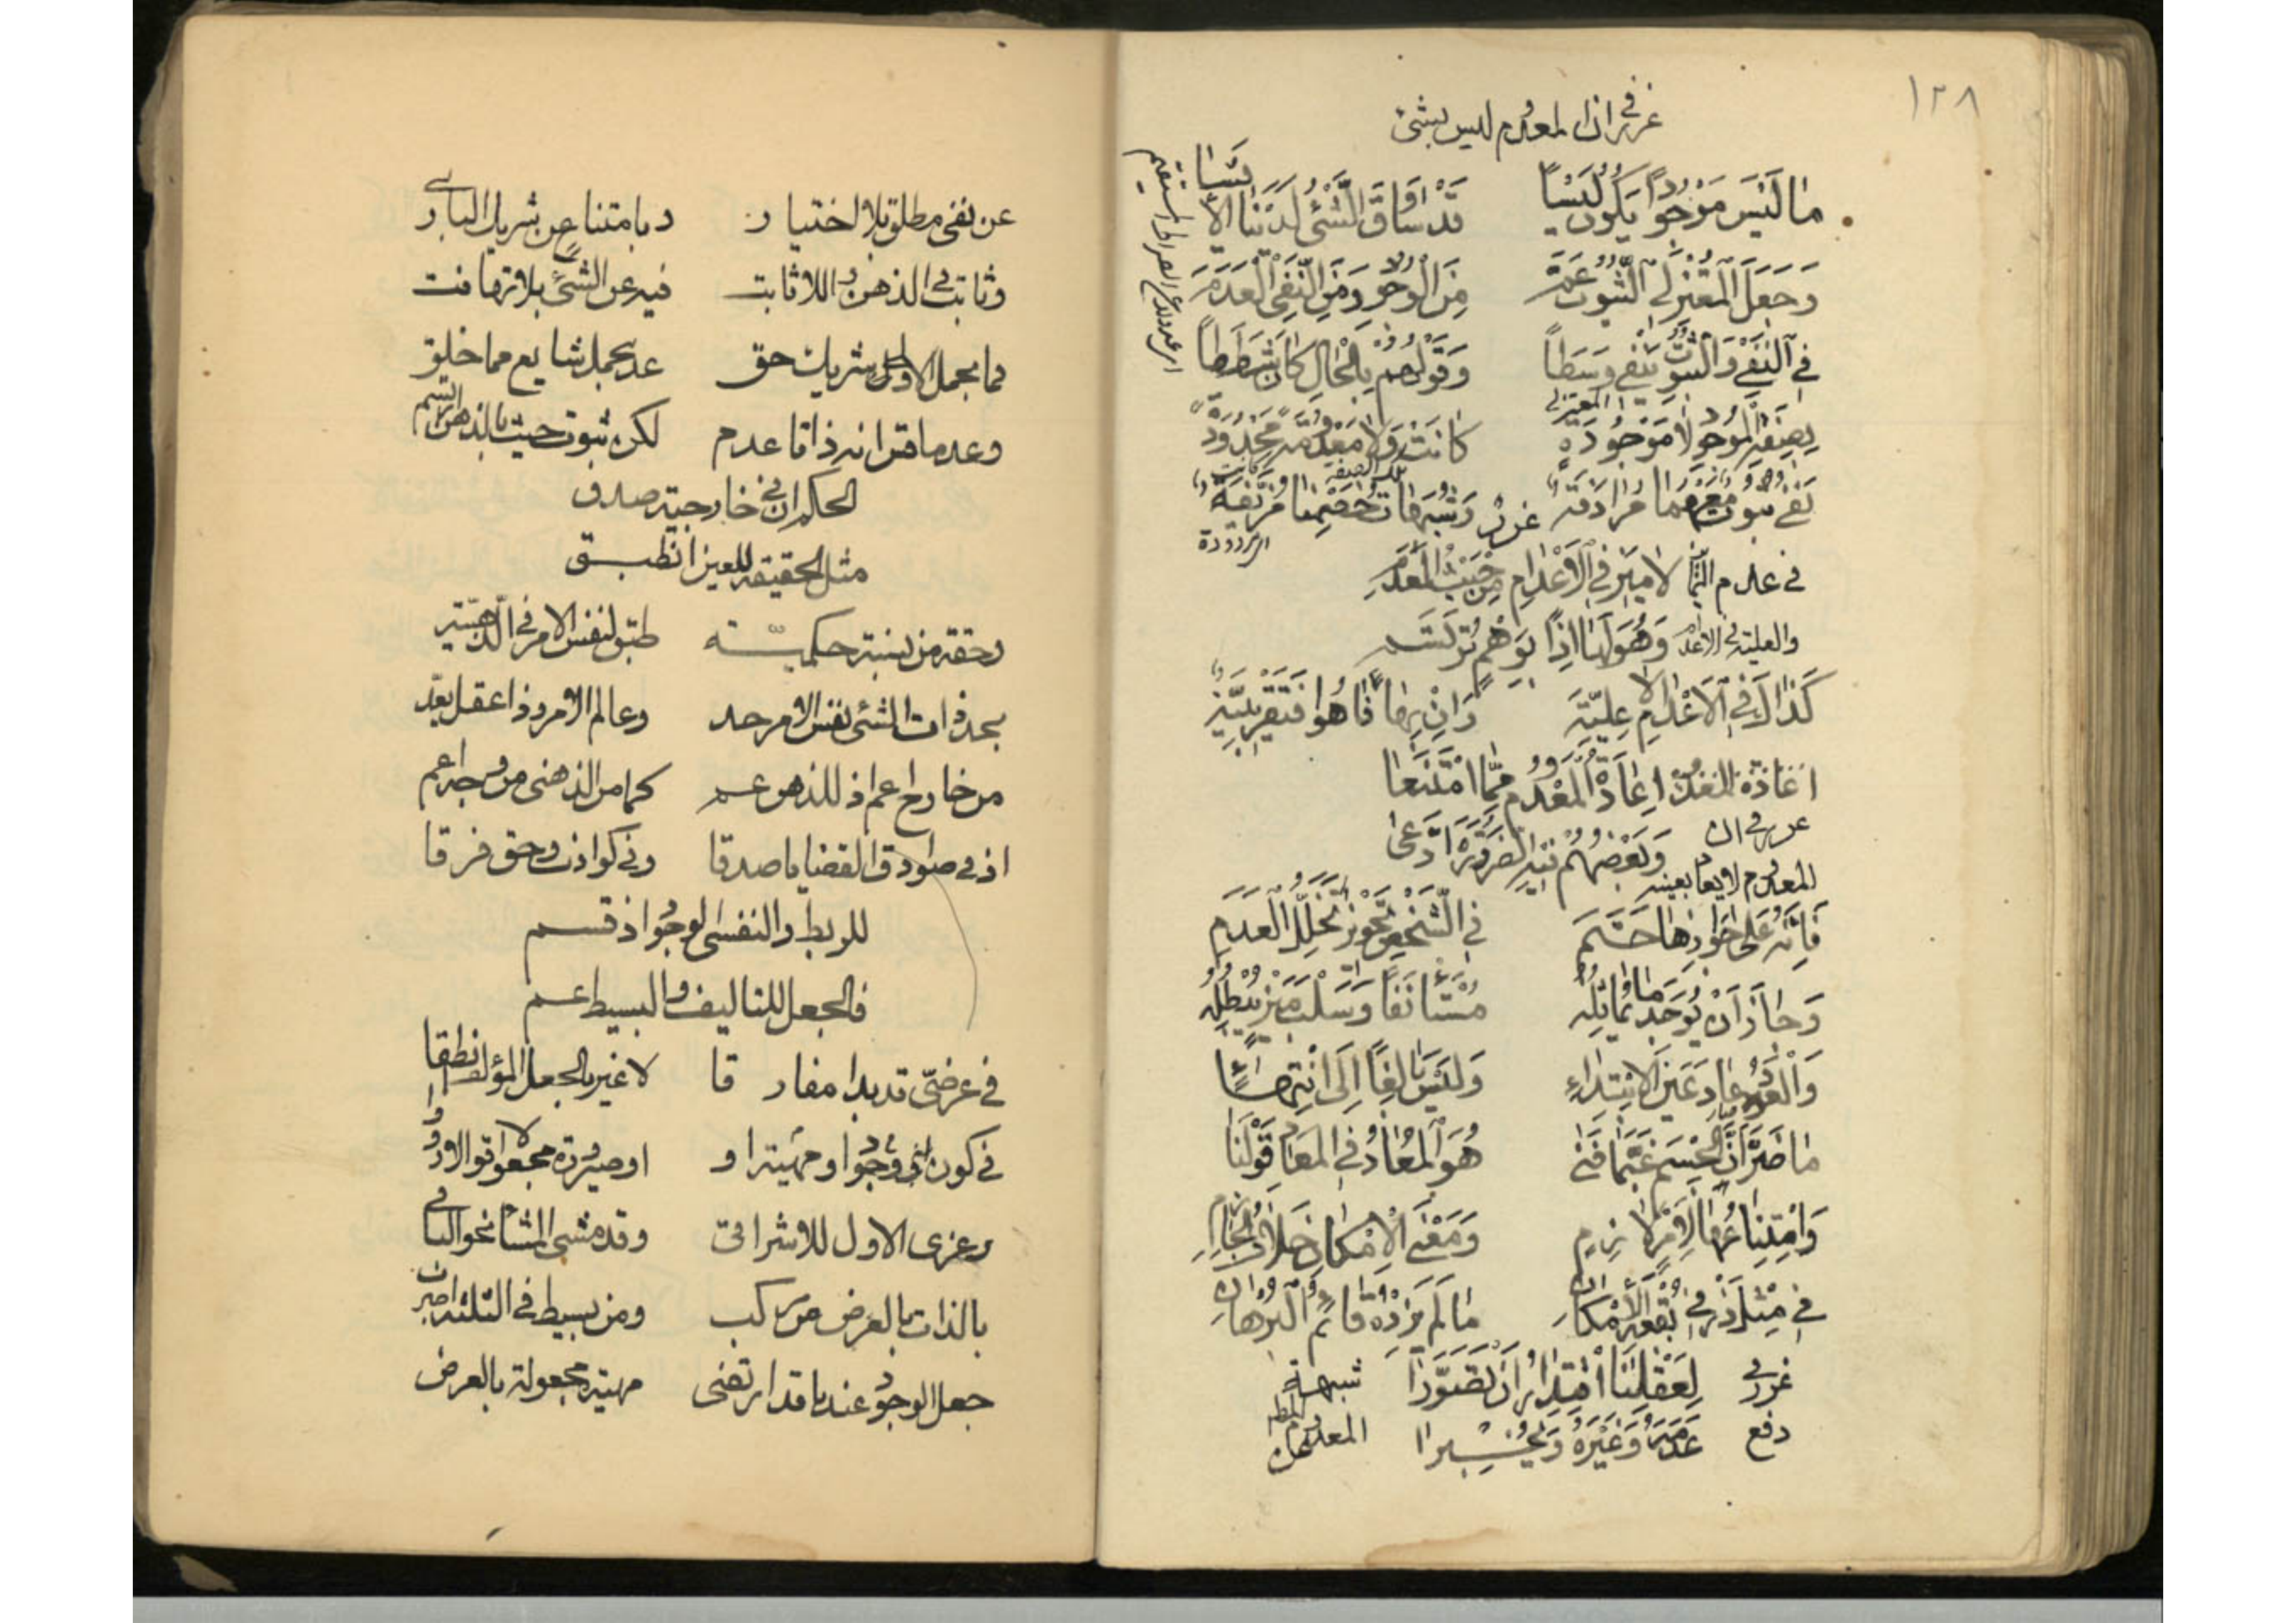 ١٢٨
غرر في ان المعدوم ليس بشئ
مَا لَيْسَ مَوْجُوداً يَكُونُ لَيْسَاً قَدْ سَاوَقَ الشَّيْءُ لَدَيْنَا الأَيْسَا
وَجَعَلَ الْمُعْتَزِلِي الثُّبُوتَ عَمَّ مِنَ الْوُجُودِ وَمِنَ النَّفْيِ الْعَدَمَ
فِي النَّفْيِ وَالثُّبُوتِ يَنْفِي وَسَطَاً وَقَوْلُهُمْ بِالْحَالِ كَانَ شَطَطاً
المعتزلي
بِصِفَةِ الْمَوْجُودِ لَا مَوْجُودَةً كَانَتْ وَلَا مَعْدُومَةً مَحْدُودَةً
نَفْيٌ ثُبُوتٌ مَعَهُمَا مُرَادَفَة وَشُبُهَاتُ خَصْمِنَا مُزَيَّفَة
اى مردودة
غرر
في عدم التمايز لَا مَيْزَ فِي الْأَعْدَامِ مِنْ حَيْثُ الْعَدَم
والعلية في الاعدام وَهُوَ لَهَا اِذاً بِوَهْمٍ تُرْتَسَم
كَذَاكَ فِي الْأَعْدَامِ لَا عِلِيَّة وَاِنْ بِهَا فَاهُوا فَتَقْرِيبِيَّة
اِعَادَةُ الْمَعْدُومِ مِمَّا امْتَنَعَا
غرر في ان
وَبَعْضُهُمْ فِيهِ الضَّرُورَةَ ادَّعَى
المعدوم لا يعاد بعينه
فَاِنَّهُ عَلَى جَوَازِهَا حَتَم فِي الشَّخْصِ تَجْوِيزُ تَخَلُّلِ الْعَدَم
وَجَازَ اَنْ يُوجَدَ مَا يُمَاثِلُهُ مُسْتَأْنَفاً وَسَلْبُ مَيْزٍ يُبْطِلُهُ
وَالْعَوْدُ عَادَ عَيْنَ الْاِبْتِدَاءِ وَلَيْسَ بَالِغاً اِلَى انْتِهَاءِ
مَا ضَرَّ اَنَّ الْجِسْمَ غِبَّ مَا فَنَى هُوَ الْمُعَادُ فِي الْمَعَادِ قَوْلُنَا
وَامْتِنَاعُهَا لِاَمْرٍ لَازِمٍ وَمَعْنَى الْاِمْكَانِ خِلَافُ الْجَازِمِ
فِي مِثْلِ ذَرْ فِي بُقْعَةِ الْاِمْكَانِ مَا لَمْ يَذُدْهُ قَائِمُ الْبُرْهَانِ
غرر في لِعَقْلِنَا اقْتِدَارٌ اَنْ تَصَوَّرَا شبهة
دفع عَدَمَهُ وَغَيْرَهُ وَيُخْبِرَا المعدوم المطلق
عن نفى مطلق بلا اختيار وبامتناع عن شريك البارى
وثابت في الذهن واللاثابت فيه عن الشئ بلا تهافت
فما بحمل الاول شريك حق عد بحمل شايع مما خلق
وعدما قس انه ذاتا عدم لكن ثبوت حيث بالذهن ارتسم
الحكم ان في خارجية صدق
مثل الحقيقة للعين انطبق
وحقه من نسبة حكمية طبق لنفس الامر في الذهنية
بحد ذات الشئ نفس الامر حد وعالم الامر وذا عقل يعد
من خارج اعم اذ للذهن عم كما من الذهنى من وجه اعم
اذ في صوادق القضايا صدقا وفي كواذب وحق فرقا
للربط والنفسى الوجود اذ قسم
فالجعل للتاليف والبسيط عم
في عرضى قد بدا مفارقا لا غير بالجعل المؤلف انطقا
في كون وجود او مهية او صيرورة مجعولا اقوالا رووا
وعزى الاول للاشراقى وقد مشى المشاء نحو الباقى
بالذات بالعرض مركب ومن بسيط في الثلثه اضربن
جعل الوجود عندنا قد ارتضى مهية مجعولة بالعرض